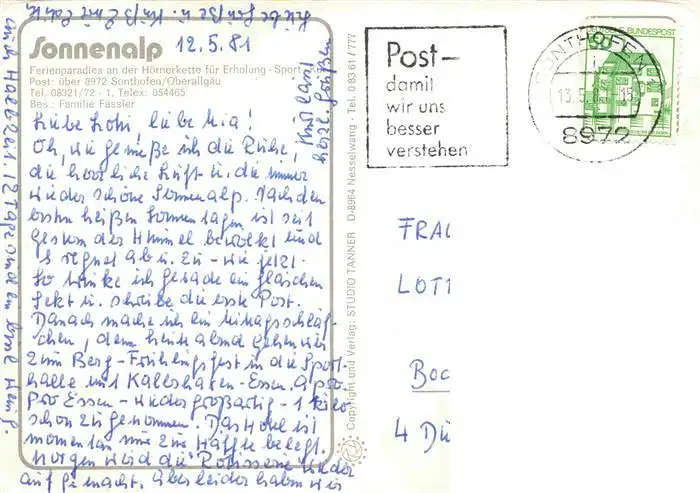 Sonnenalp 12.5.81
Ferienparadies an der Hörnerkette für Erholung - Sport
Post: über 8972 Sonthofen/Oberallgäu
Tel. 08321/72 - 1, Telex: 054465
Bes.: Familie Fässler
Liebe Lotti, liebe Mia!
Oh, wie genieße ich die Ruhe,
die herrliche Luft u. die immer
wieder schöne Sonnenalp. Nach den
ersten heißen Sonnentagen ist seit
gestern der Himmel bewölkt und
es regnet ab u. zu - wie jetzt.
So trinke ich gerade ein Gläschen
Sekt u. schreibe die erste Post.
Danach mache ich ein Mittagsschläf-
chen, denn heute abend gehen wir
zum Berg-Frühlingsfest in die Sport-
halle mit Essen. Apro-
pro Essen - wieder großartig - 1 Kilo
schon zugenommen. Das Hotel ist
momentan nur zur Hälfte belegt.
Morgen wird die Rotisserie wieder
aufgemacht. Aber leider haben wir
nach Halbzeit. 12 Tage sind ein
Liebe Grüße u.
herzl. Grüßen
Copyright und Verlag: STUDIO TANNER D-8964 Nesselwang - Tel. 0 83 61 / 777
Post-
damit
wir uns
besser
verstehen
SONTHOFEN
13.5.
8972
BUNDESPOST
50
FRAU
LOTT
Boc
4 DÜ